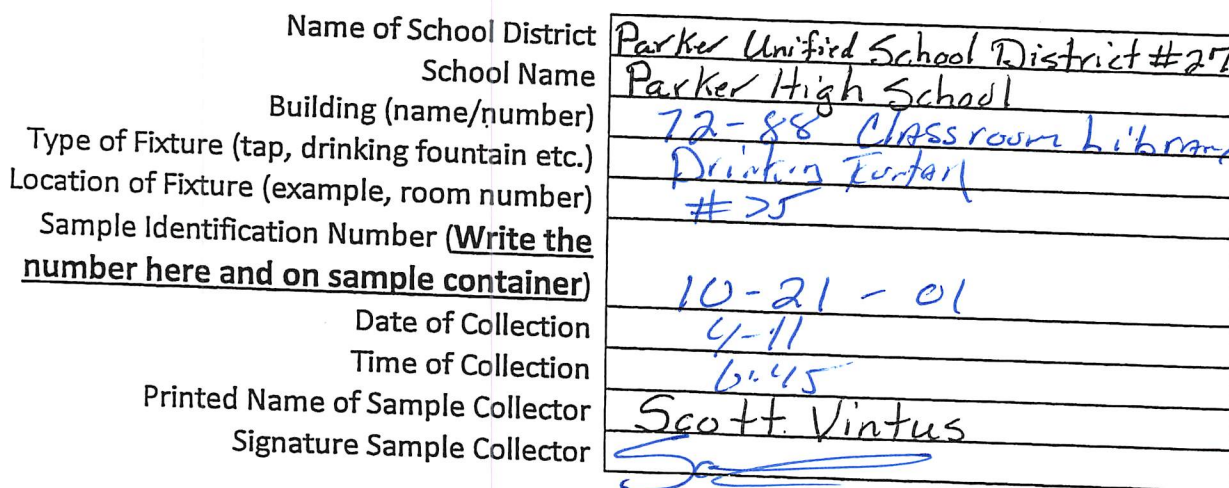 Name of School District Parker Unified School District #27
School Name Parker High School
Building (name/number) 72-88 Classroom Library
Type of Fixture (tap, drinking fountain etc.) Drinking Funtan
Location of Fixture (example, room number) #25
Sample Identification Number (Write the
number here and on sample container) 10-21-01
Date of Collection 4-11
Time of Collection 6:45
Printed Name of Sample Collector Scott Vintus
Signature Sample Collector